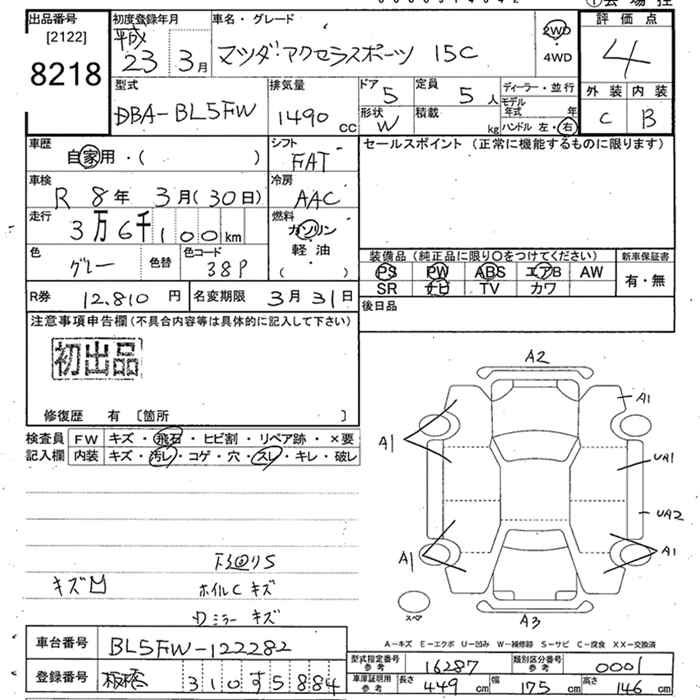 出品番号
[2122]
8218
初度登録年月
平成
23 3月
車名・グレード
マツダ・アクセラスポーツ 15C
2WD
4WD
評価点
4
外装 内装
C B
型式
DBA-BL5FW
排気量
1490 cc
ドア
5
定員
5人
形状
W
積載
kg
ディーラー・並行
モデル年式 年
ハンドル 左・右
車歴
自家用・( )
シフト
FAT
セールスポイント (正常に機能するものに限ります)
車検
R 8年 3月(30日)
冷房
AAC
走行
3万6千100km
燃料
ガソリン
軽・油
( )
色
グレー
色替
色コード
38P
装備品(純正品に限り○をつけてください)
PS PW ABS エアB AW
SR ナビ TV カワ
新車保証書
有・無
R券
12,810円
名変期限
3月31日
後日品
注意事項申告欄(不具合内容等は具体的に記入して下さい)
初出品
修復歴 有 [箇所 ]
検査員
記入欄
FW キズ・飛石・ヒビ割・リペア跡・×要
内装 キズ・汚レ・コゲ・穴・スレ・キレ・破レ
下廻りS
キズ凹
ホイルC キズ
ミラー キズ
A2
A1
A1
UA1
UA2
A1
A1
スペア
A3
A-キズ E-エクボ U-凹み W-補修跡 S-サビ C-腐食 XX-交換済
車台番号
BL5FW-122282
登録番号
板橋 310す5884
型式指定番号
参考
16287
類別区分番号
参考
0001
車庫証明用
参考
長さ
449cm
幅
175cm
高さ
146cm